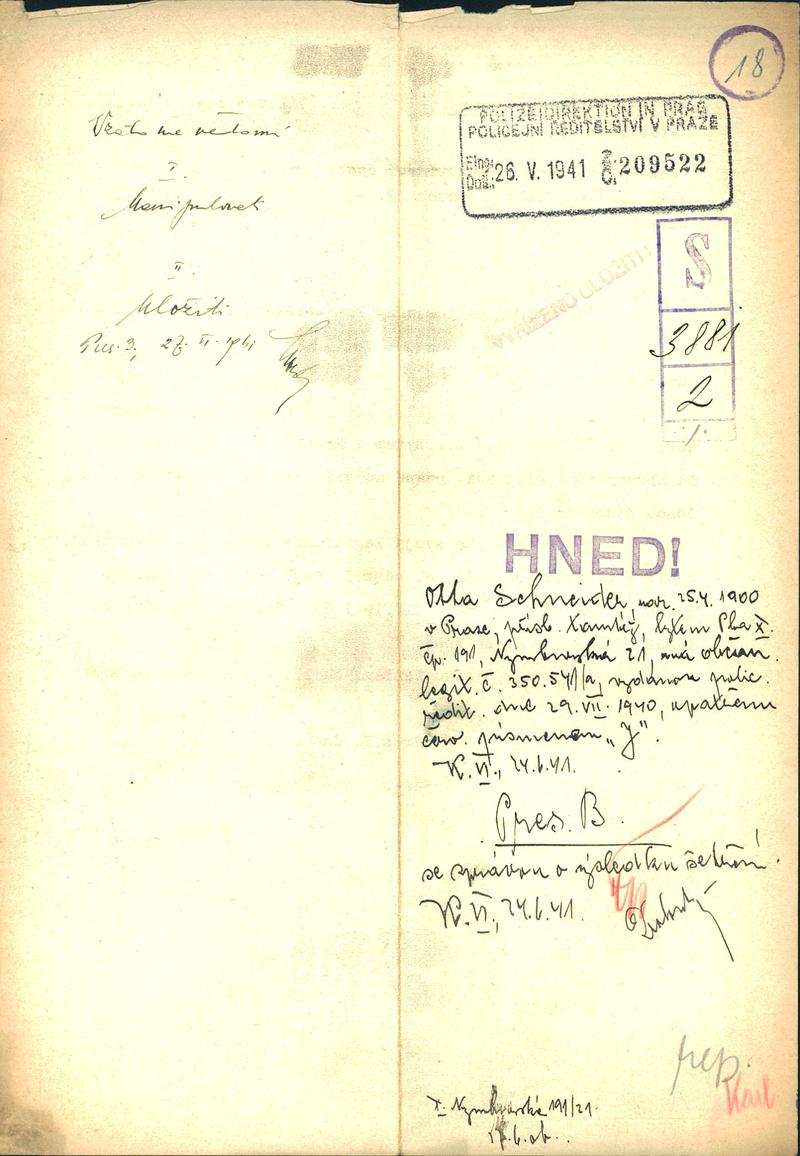 18
POLIZEIDIREKTION IN PRAG
POLICEJNÍ ŘEDITELSTVÍ V PRAZE
Eing.
Došl. 26. V. 1941 209522
S
3881
2
VYŘÍZENO ULOŽITI
Vzato na vědomí
I.
Manipulovati
II.
Uložiti
HNED!
Otto Schneider, nar. 25.4. 1900
v Praze, přísl. tamtéž, bytem Praha X.
čp. 191, Nymburská 21, má občan.
legit. č. 350.541/a, vydanou polic.
ředit. dne 29. VII. 1940, opatřenou
červ. písmenem "J".
K. VI., 24.6.41.
Pres. B.
se zprávou o výsledku šetření.
K. VI., 24.6.41.
rep.
Karl
X. Nymburská 191/21.